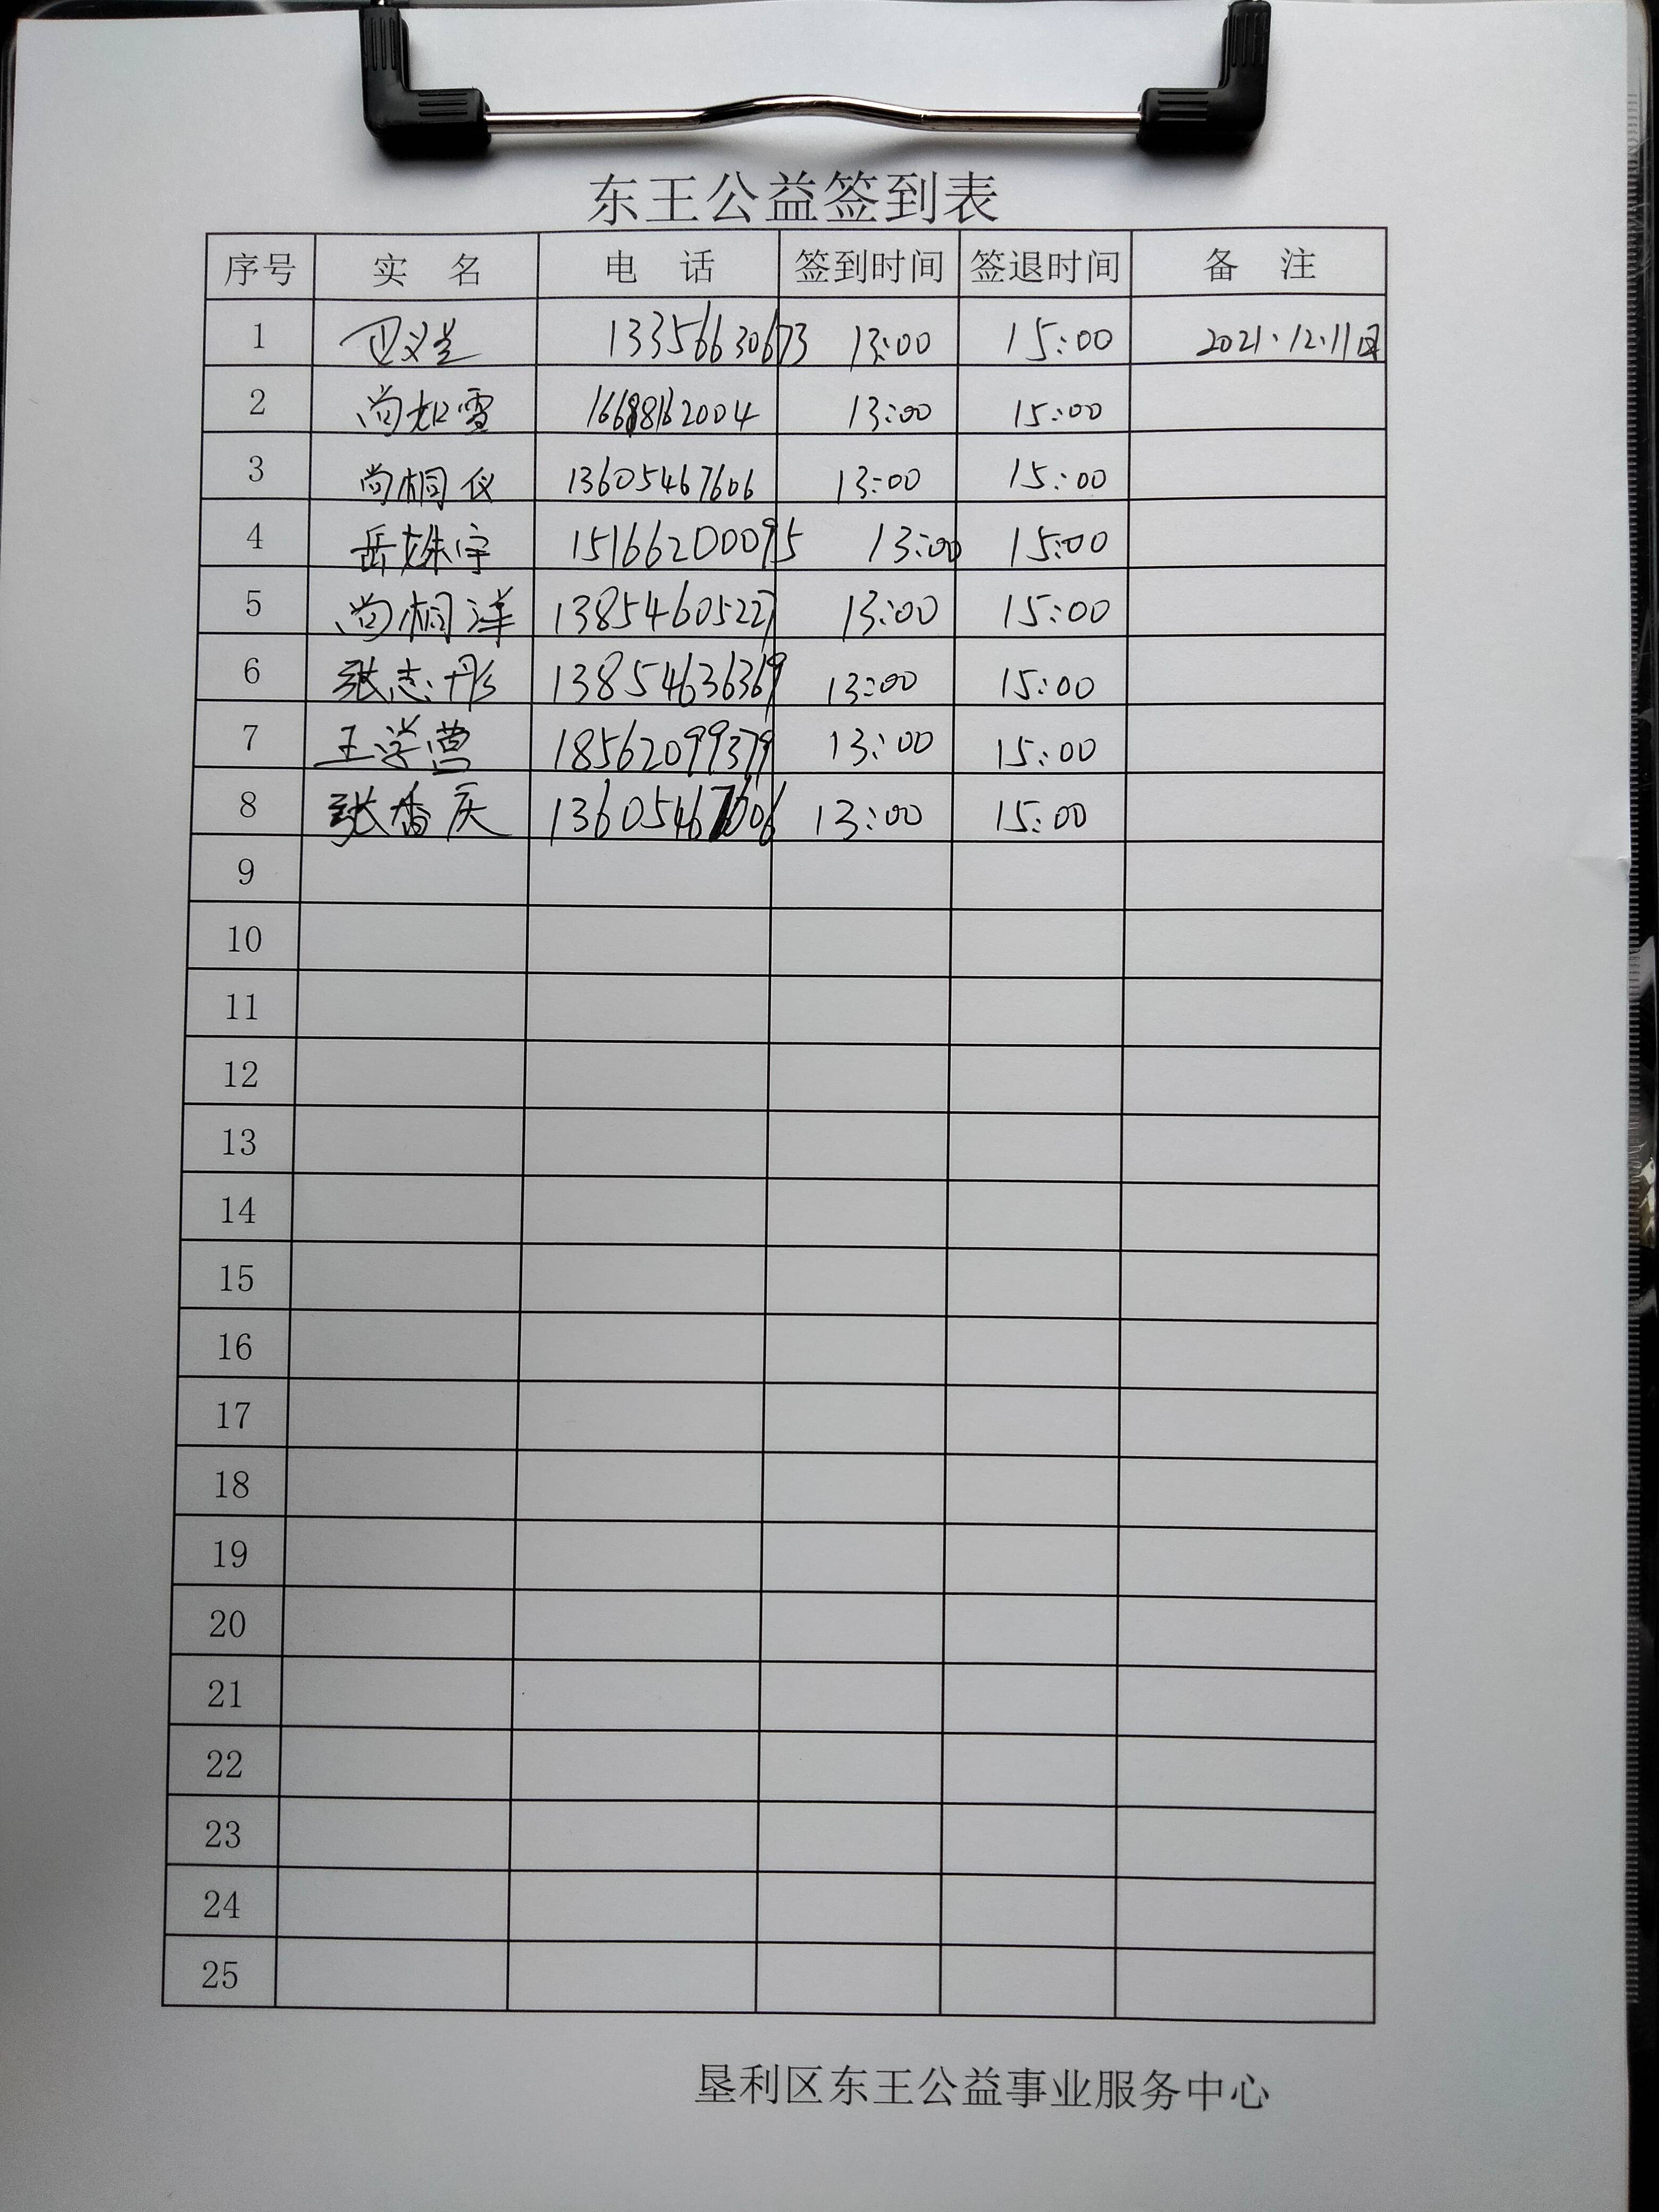 东王公益签到表
序号 实名 电话 签到时间 签退时间 备注
1 13356630673 13:00 15:00 2021.12.11日
2 尚如雪 16688162004 13:00 15:00
3 尚桐仪 13605467606 13:00 15:00
4 岳姝宇 15166200095 13:00 15:00
5 尚桐洋 13854605227 13:00 15:00
6 张志彤 13854636369 13:00 15:00
7 王学营 18562099379 13:00 15:00
8 张香庆 13605467606 13:00 15:00
9
10
11
12
13
14
15
16
17
18
19
20
21
22
23
24
25
垦利区东王公益事业服务中心